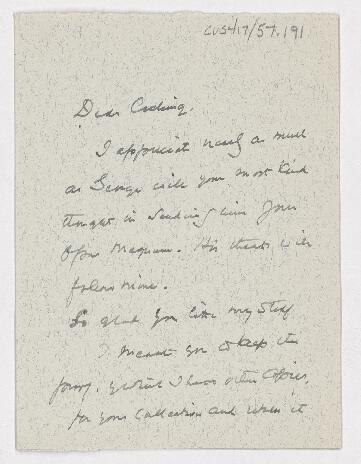 CUS417/57.191
Dear Codling,
I appreciate nearly as much
as George will your most kind
thought in sending him your
Opus Magnum. His thanks will
follow mine.
So glad you like my stuff
I meant you to keep the
of which I have other copies,
for your Collection and when it